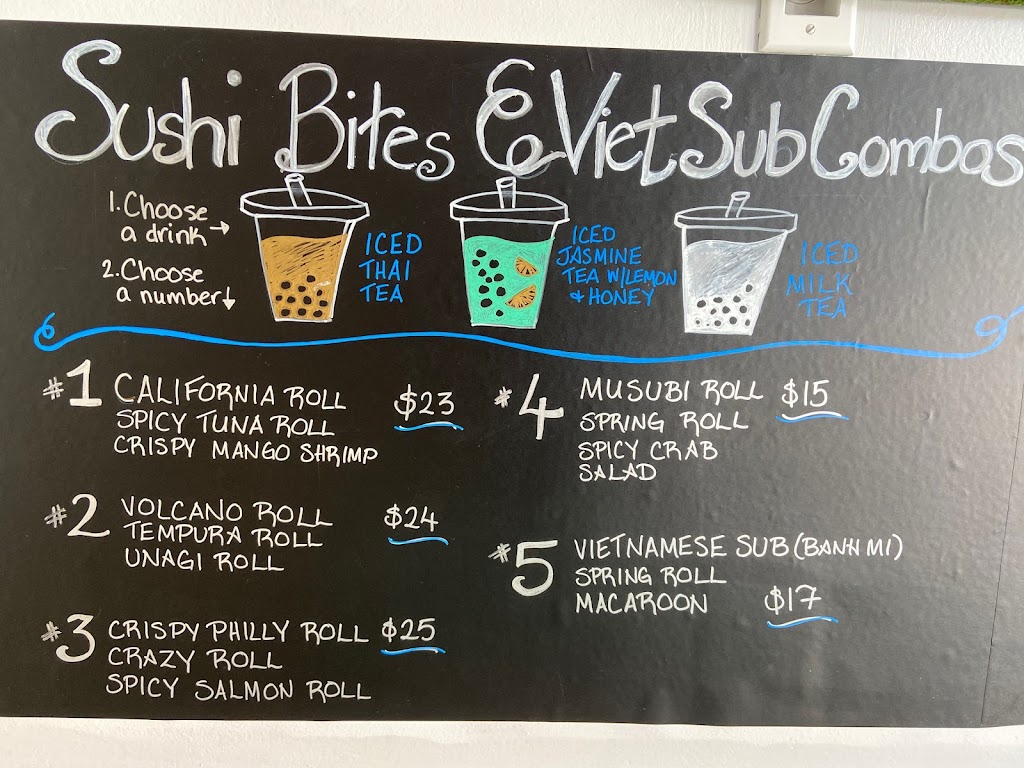 Sushi Bites & Viet Sub Combos
1. Choose
a drink →
2. Choose
a number ↓
ICED
THAI
TEA
ICED
JASMINE
TEA W/LEMON
& HONEY
ICED
MILK
TEA
#1 CALIFORNIA ROLL $23
SPICY TUNA ROLL
CRISPY MANGO SHRIMP
#2 VOLCANO ROLL $24
TEMPURA ROLL
UNAGI ROLL
#3 CRISPY PHILLY ROLL $25
CRAZY ROLL
SPICY SALMON ROLL
#4 MUSUBI ROLL $15
SPRING ROLL
SPICY CRAB
SALAD
#5 VIETNAMESE SUB (BANH MI)
SPRING ROLL
MACAROON $17